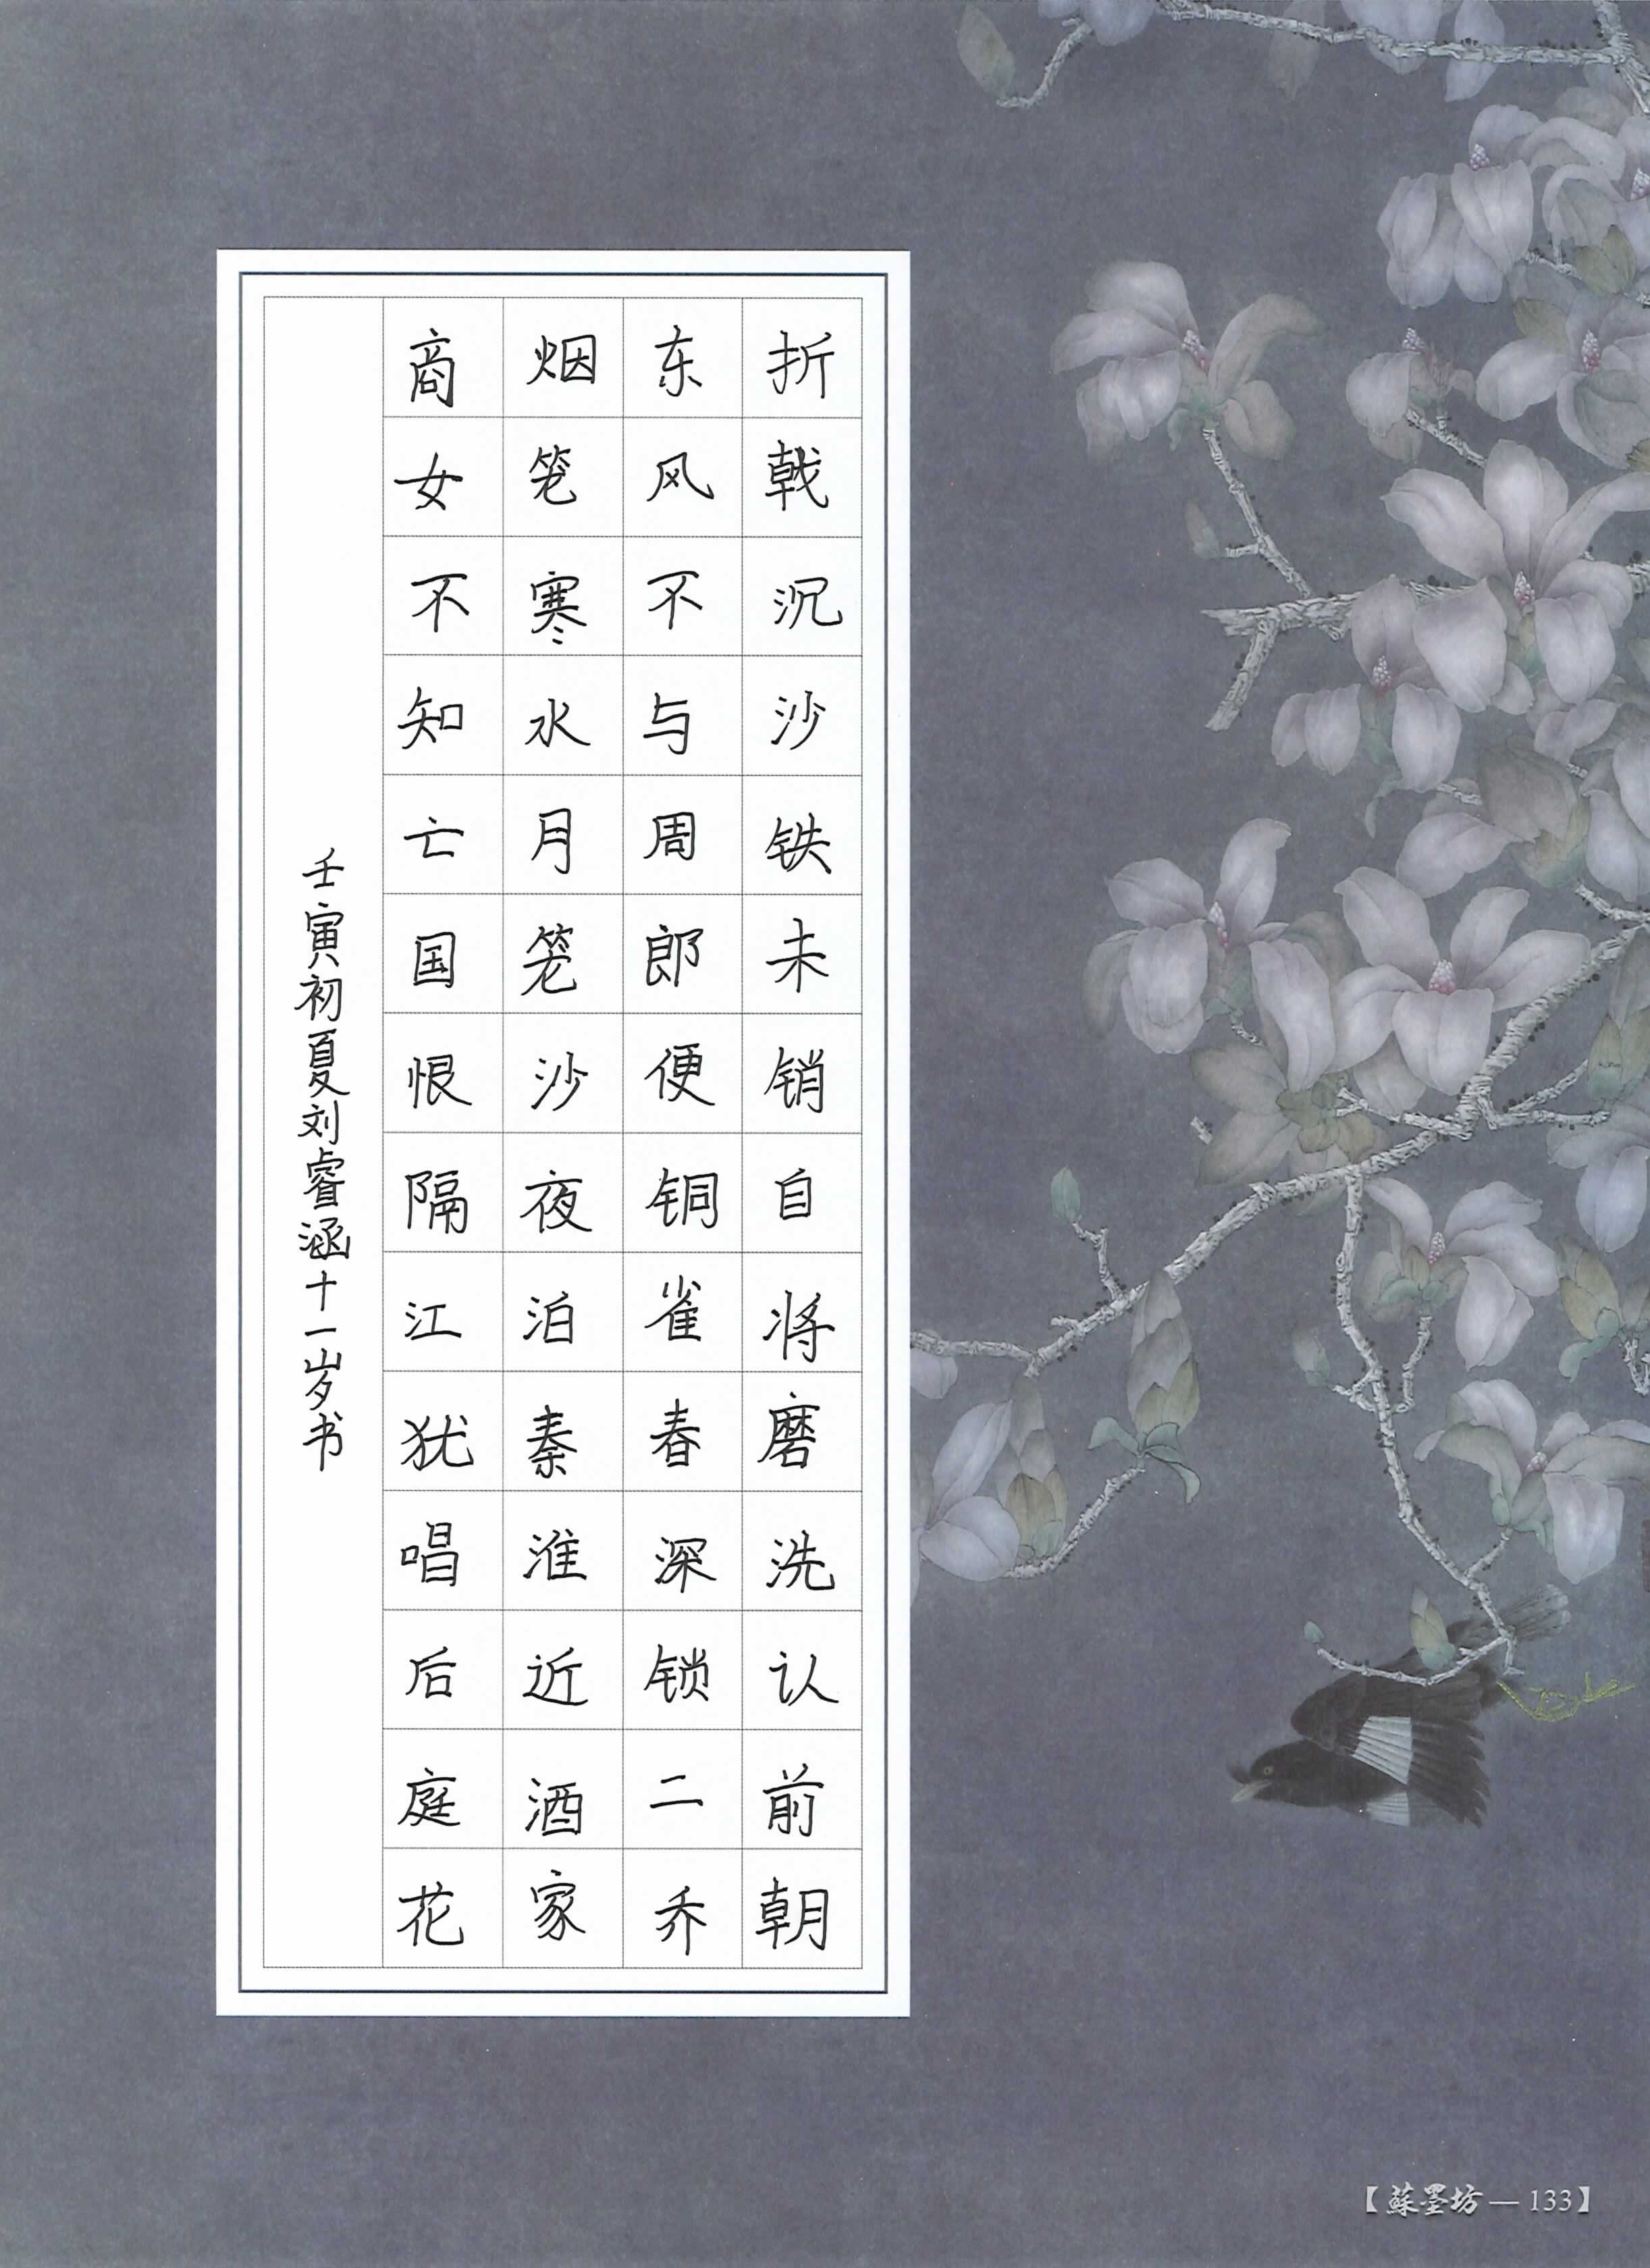 折戟沉沙铁未销自将磨洗认前朝
东风不与周郎便铜雀春深锁二乔
烟笼寒水月笼沙夜泊秦淮近酒家
商女不知亡国恨隔江犹唱后庭花
壬寅初夏刘睿涵十一岁书
【蘇墨坊—133】